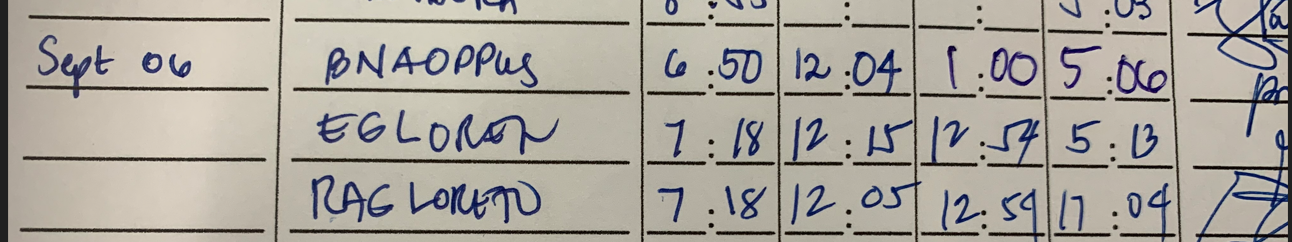 5:03
Sept 06 BNAOPPUS 6:50 12:04 1:00 5:06
EGLOREN 7:18 12:15 12:54 5:13
RAGLORETO 7:18 12:05 12:59 17:04